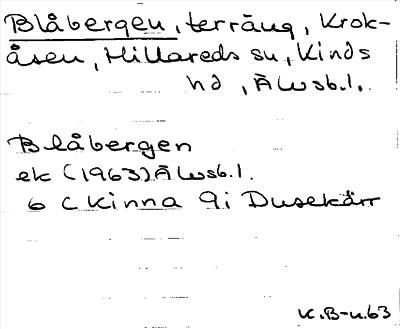 Blåbergen, terräng, Krok-
åsen, Hillareds sn, Kinds
hd, Älvsb. l.
Blåbergen
ek (1963) Älvsb. l.
6 C Kinna 9i Dusekärr
K. B-n. 63